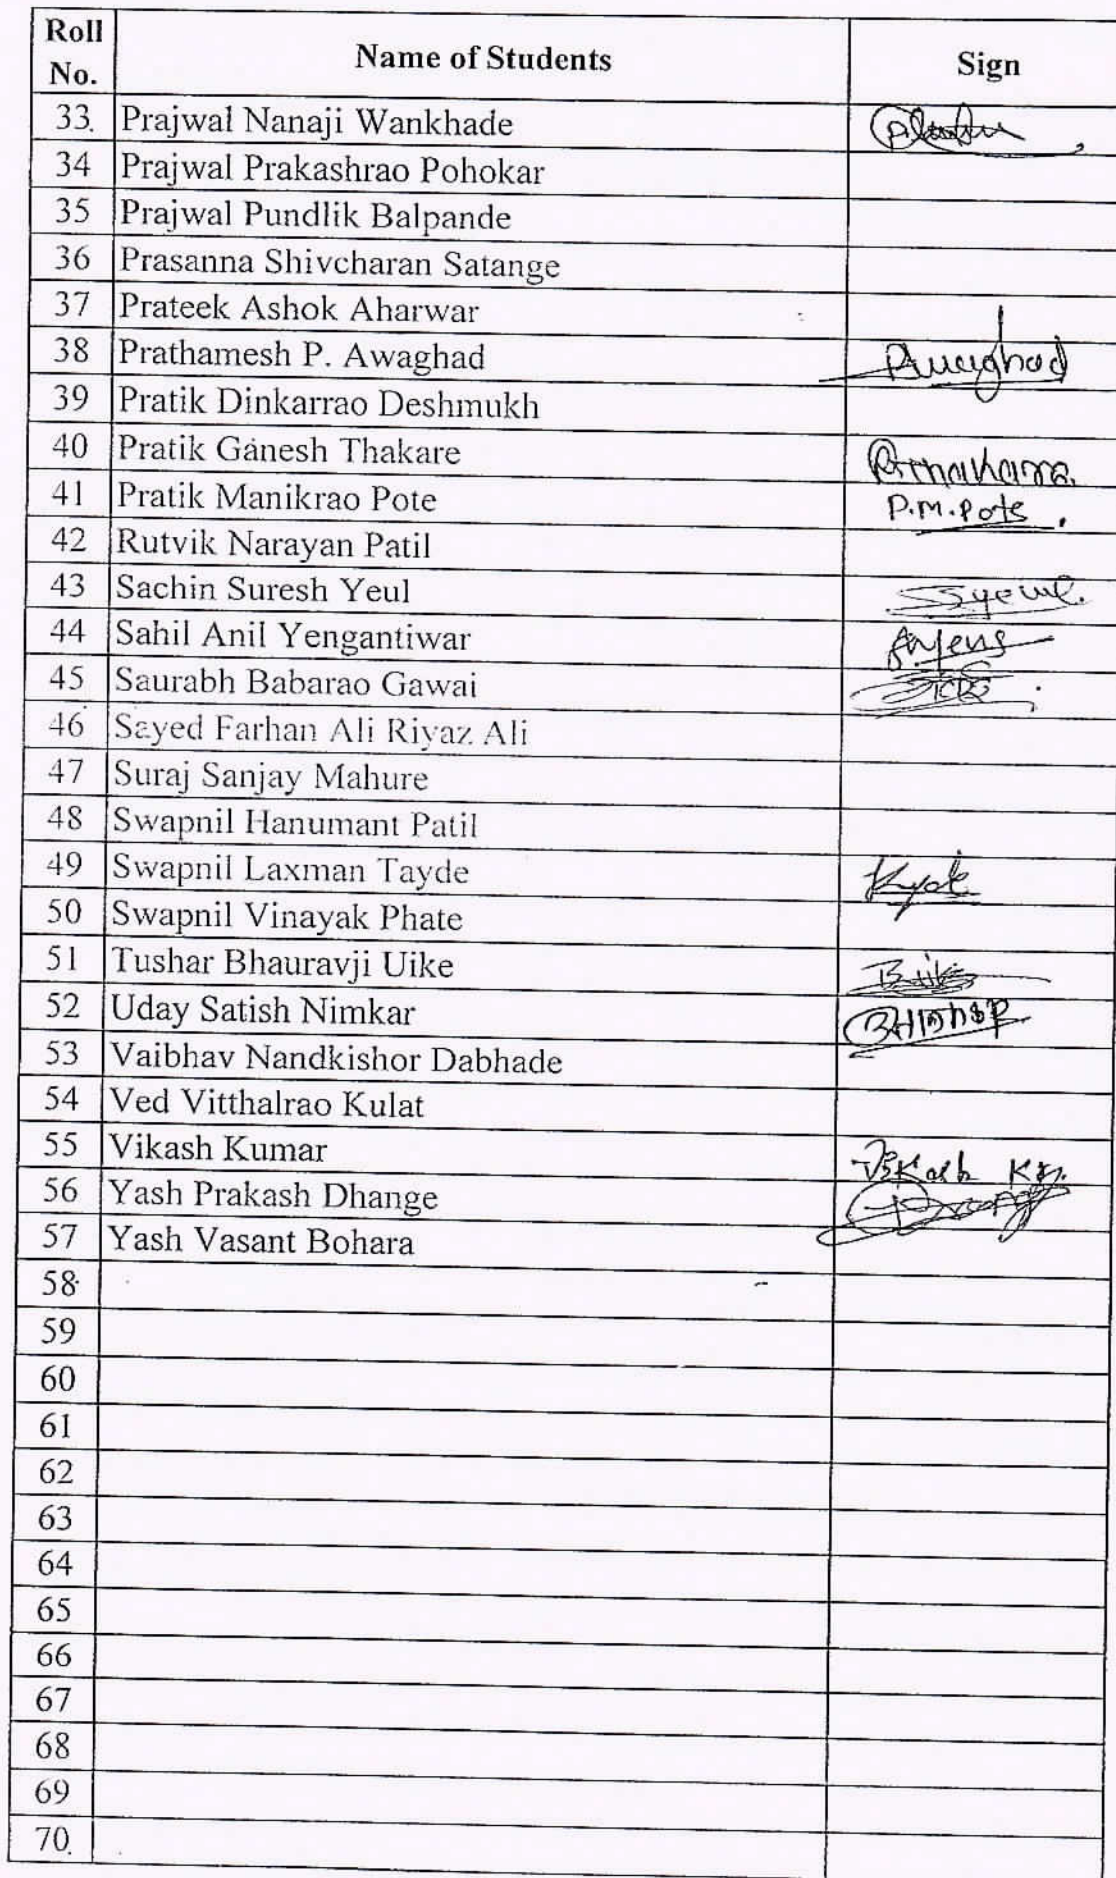 Roll No. Name of Students Sign
33. Prajwal Nanaji Wankhade
34 Prajwal Prakashrao Pohokar
35 Prajwal Pundlik Balpande
36 Prasanna Shivcharan Satange
37 Prateek Ashok Aharwar
38 Prathamesh P. Awaghad Awaghad
39 Pratik Dinkarrao Deshmukh
40 Pratik Ganesh Thakare
41 Pratik Manikrao Pote P.M.Pote
42 Rutvik Narayan Patil
43 Sachin Suresh Yeul
44 Sahil Anil Yengantiwar
45 Saurabh Babarao Gawai
46 Sayed Farhan Ali Riyaz Ali
47 Suraj Sanjay Mahure
48 Swapnil Hanumant Patil
49 Swapnil Laxman Tayde
50 Swapnil Vinayak Phate
51 Tushar Bhauravji Uike
52 Uday Satish Nimkar
53 Vaibhav Nandkishor Dabhade
54 Ved Vitthalrao Kulat
55 Vikash Kumar Vikash Kr.
56 Yash Prakash Dhange
57 Yash Vasant Bohara
58
59
60
61
62
63
64
65
66
67
68
69
70